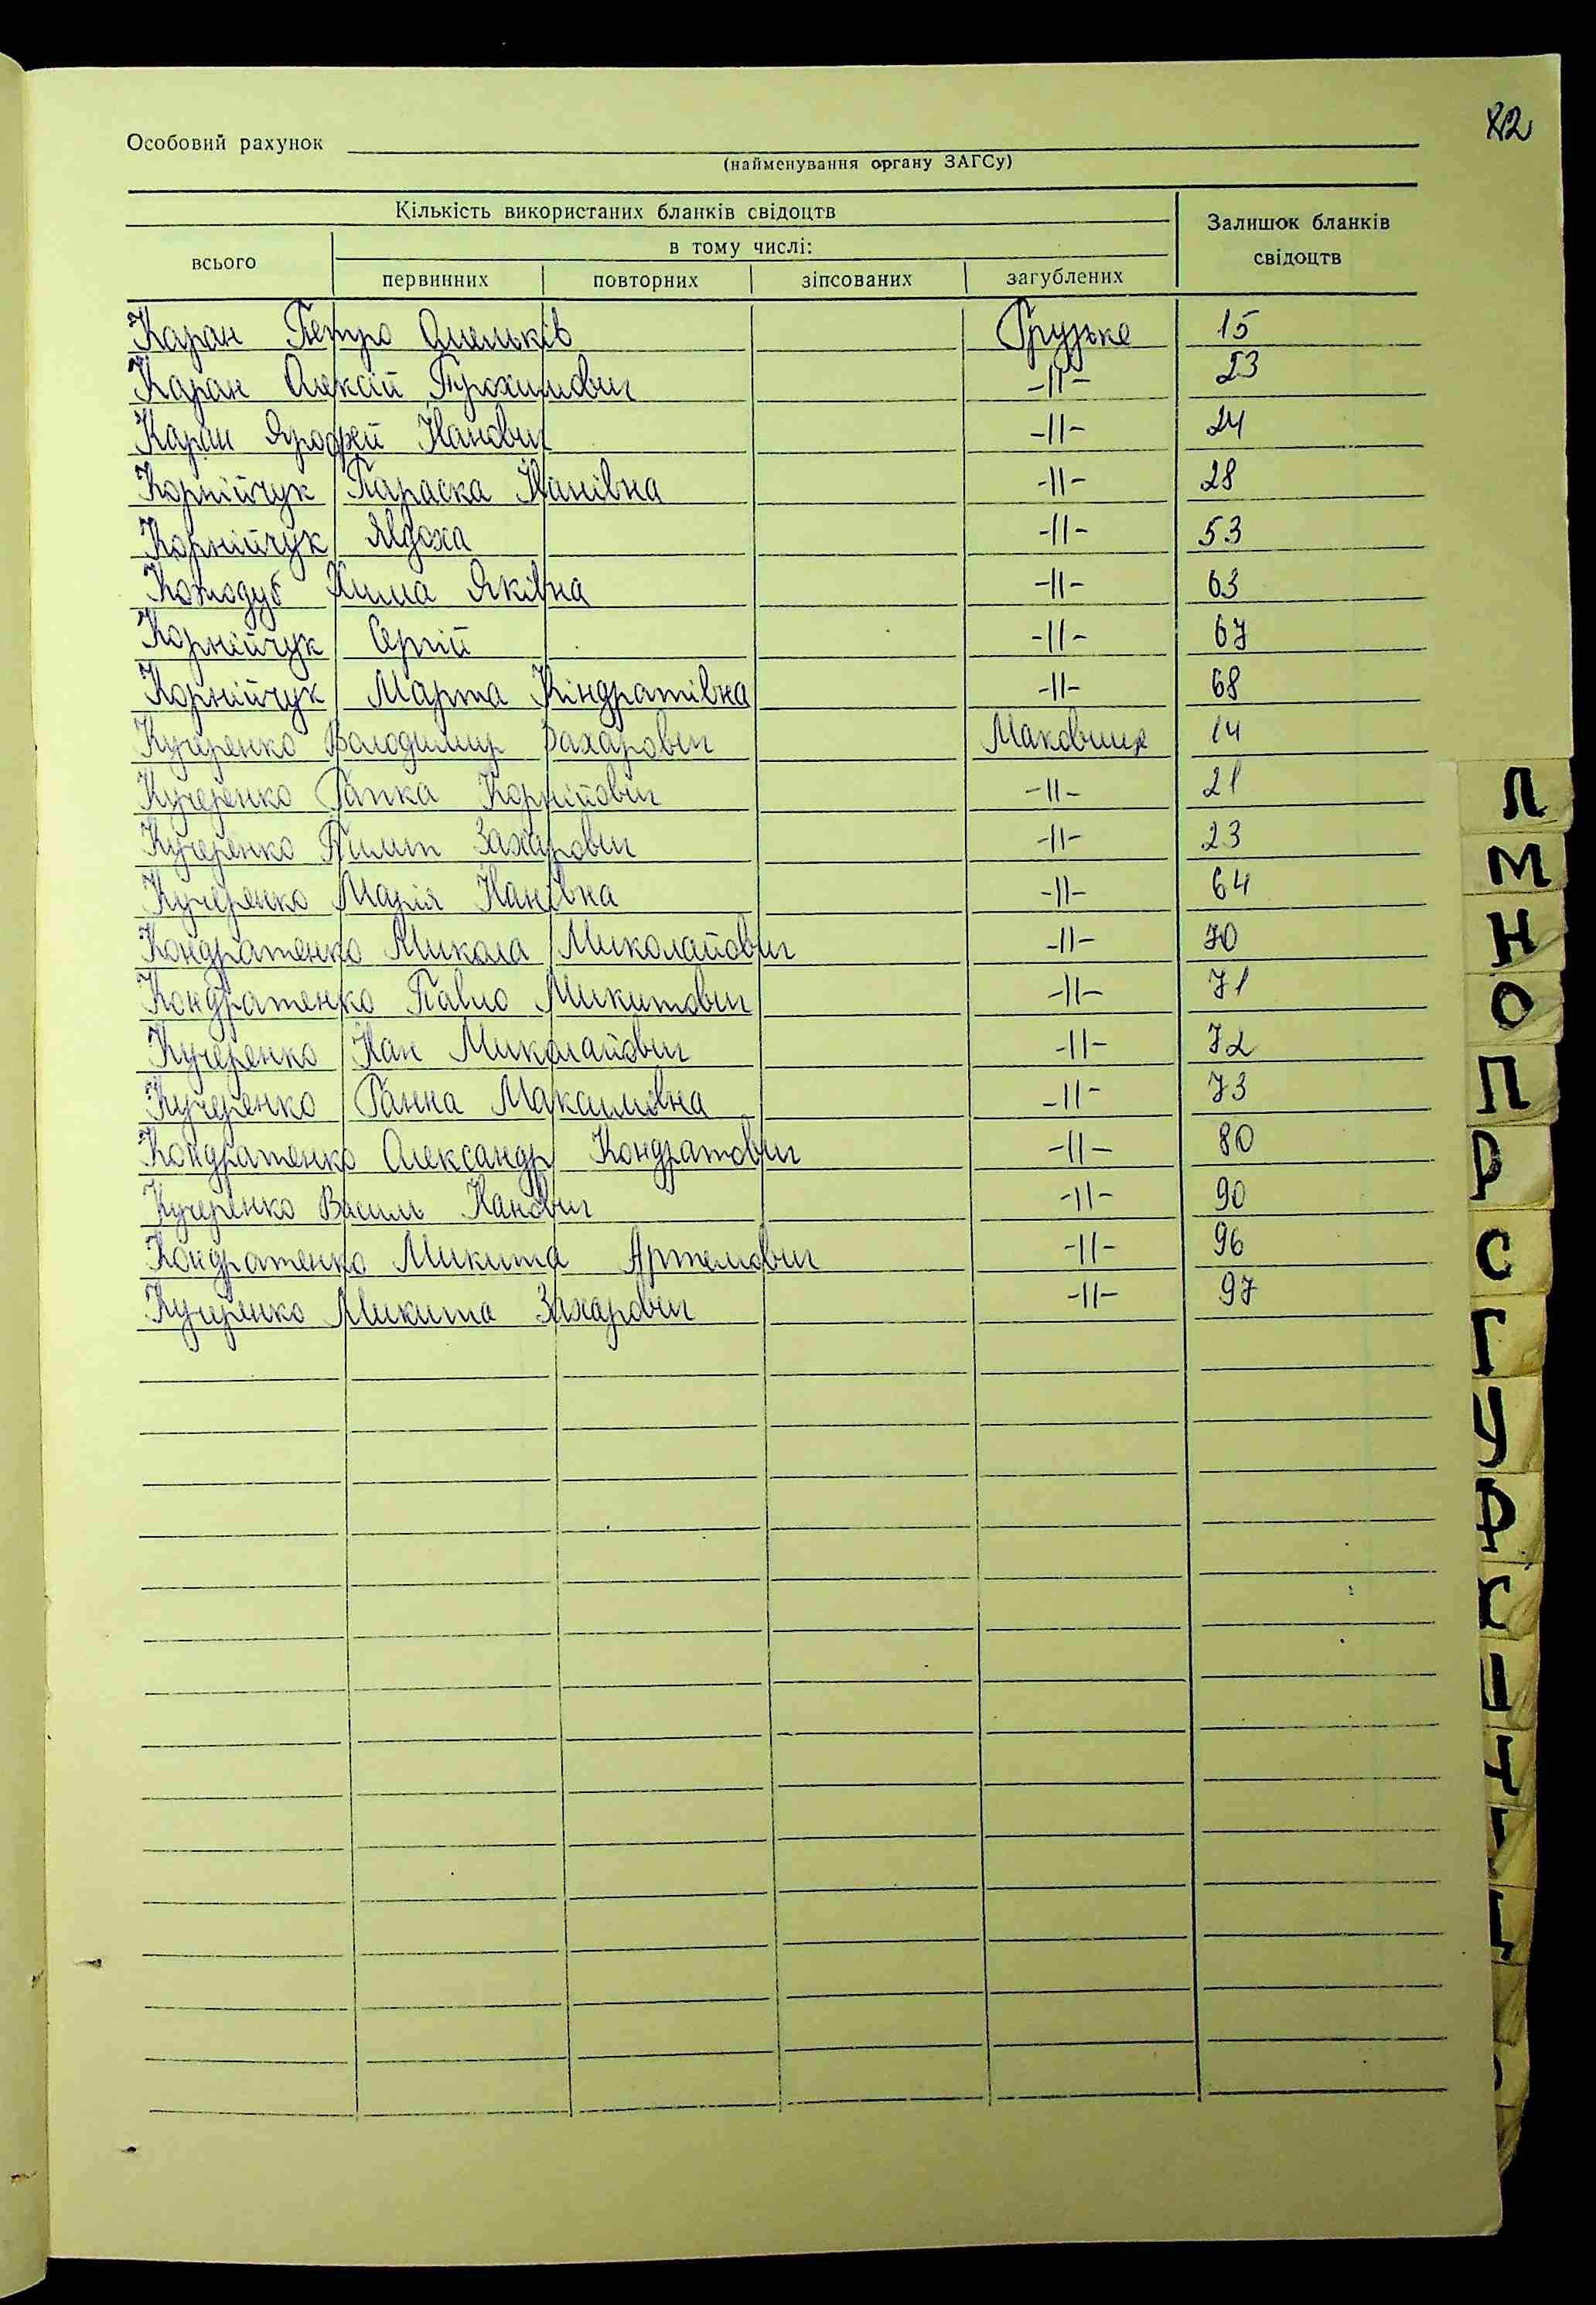 82
Особовий рахунок
(найменування органу ЗАГСу)
Кількість використаних бланків свідоцтв
Залишок бланків свідоцтв
всього
в тому числі:
первинних повторних зіпсованих загублених
Каран Петро Омельків Грузьке 15
Каран Олексій Трохимович -11- 23
Каран Ярофей Іванович -11- 24
Корнійчук Параска Іванівна -11- 28
Корнійчук Явдоха -11- 53
Хима Яківна -11- 63
Корнійчук Сергій -11- 67
Корнійчук Марта Кіндратівна -11- 68
Кучеренко Володимир Захарович Маковище 14
Кучеренко Гапка Корнійович -11- 21
Кучеренко Пилип Захарович -11- 23
Кучеренко Марія Іванівна -11- 64
Кондратенко Микола Миколайович -11- 70
Кондратенко Павло Микитович -11- 71
Кучеренко Іван Миколайович -11- 72
Кучеренко Ганна Максимівна -11- 73
Кондратенко Олександр Кондратович -11- 80
Кучеренко Василь Іванович -11- 90
Кондратенко Микита Артемович -11- 96
Кучеренко Микита Захарович -11- 97
Л
М
Н
О
П
Р
С
Т
У